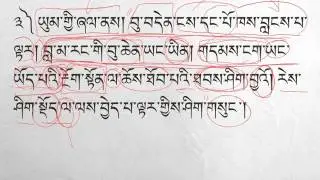 ༣༽ ཡུམ་གྱི་ཞལ་ནས། བུ་བདེན་ངས་དང་པོ་ཁས་བླངས་པ་
ལྟར། བླ་མ་རང་གི་བུ་ཆེན་ཡང་ཡིན། གདམས་ངག་ཡང་
ཡོད་པའི་རྔོག་སྟོན་ལ་ཆོས་ཐོབ་པའི་ཐབས་ཤིག་བྱའོ། རེས་
ཤིག་སྡོད་ལ་ལས་བྱེད་པ་ལྟར་གྱིས་ཤིག་གསུང་།